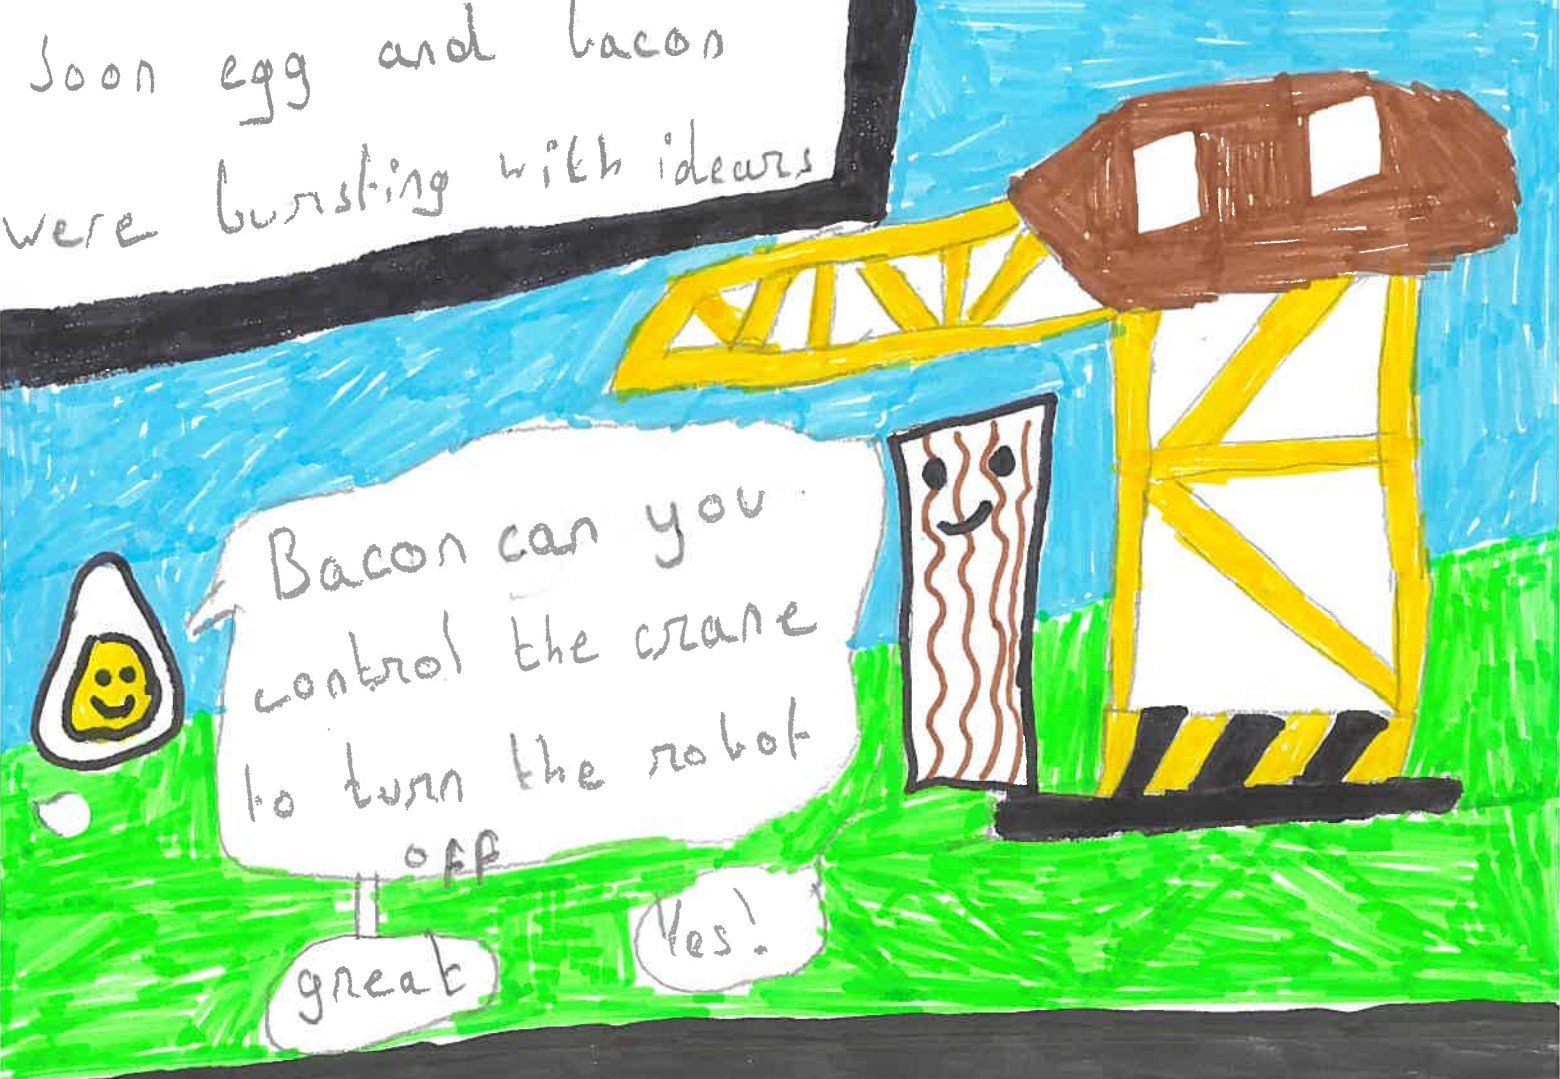 Soon egg and bacon
were bursting with idears
Bacon can you
control the crane
to turn the robot
off
Yes!
great